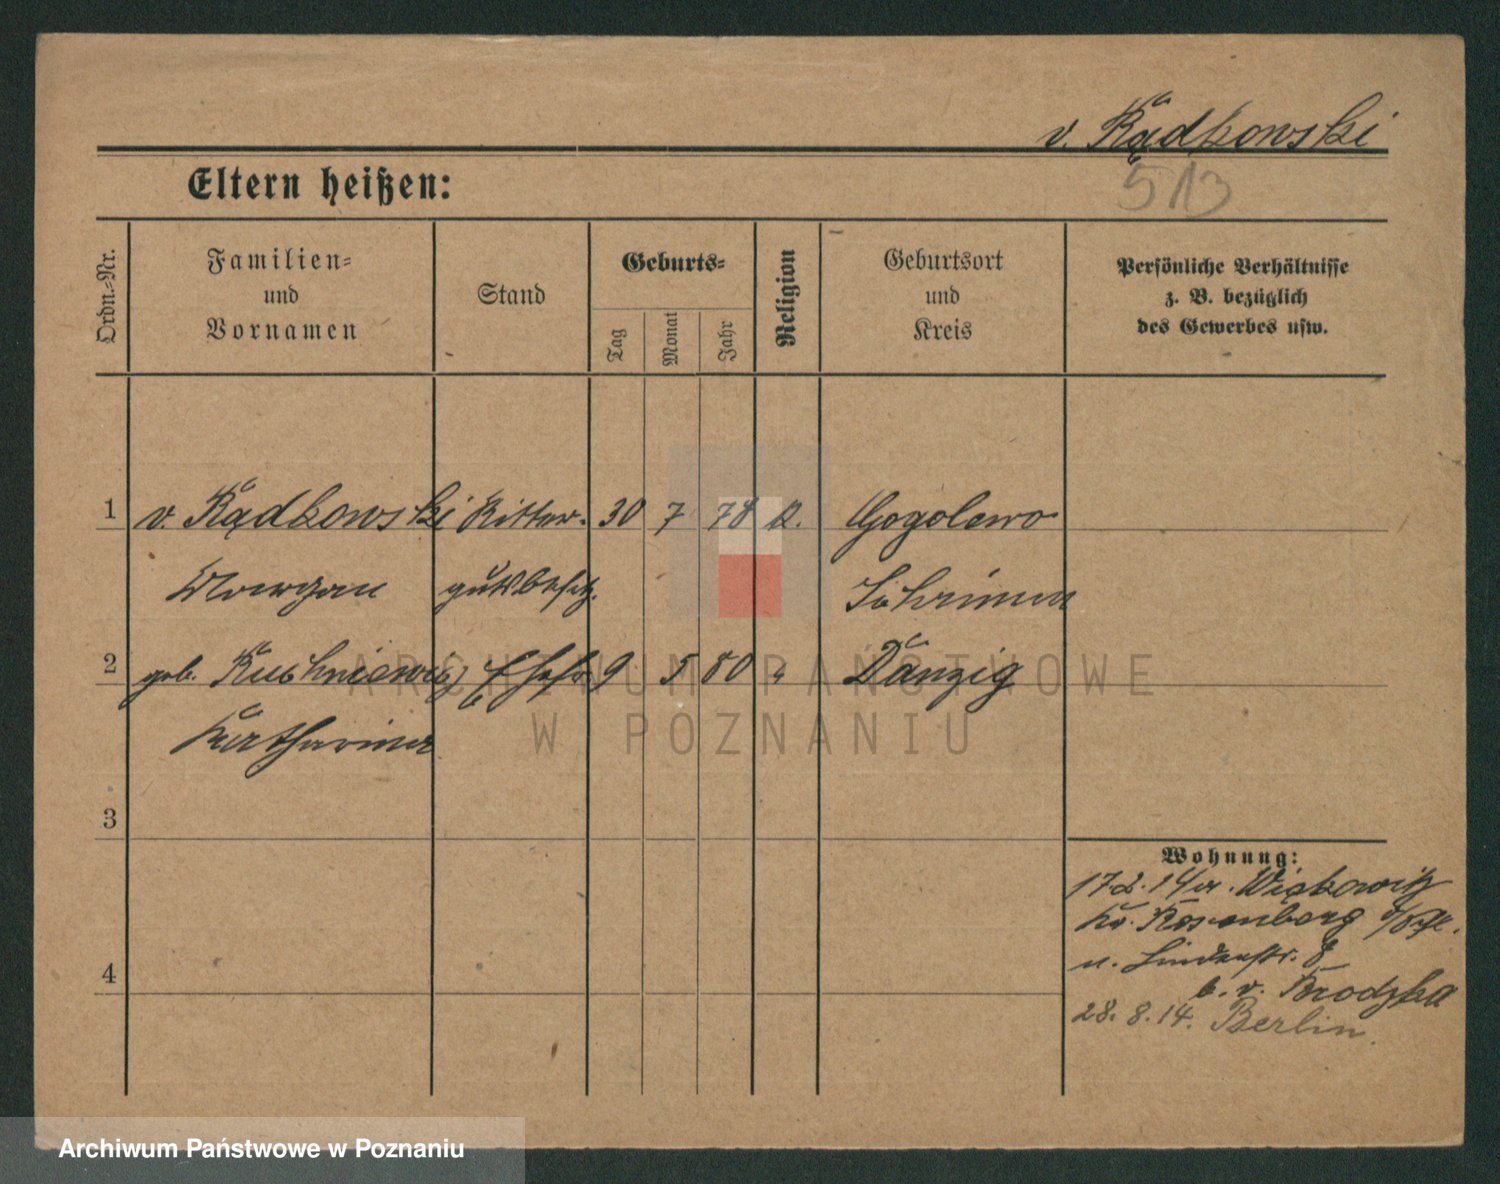 v. Kądkowski
513
Eltern heißen:
Ordn.-Nr.
Familien-
und
Vornamen
Stand
Geburts-
Tag
Monat
Jahr
Religion
Geburtsort
und
Kreis
Persönliche Verhältnisse
z. B. bezüglich
des Gewerbes usw.
1 v. Kądkowski Ritter- 30 7 78 k. Gogolewo
gutsbesitz. Schrimm
2 geb. Ehefr. 9 5 80 " Danzig
Katharina
3
4
Wohnung:
17.2.14 a.
Kr. Rosenberg
n. Lindenstr. 8
b. v. Brodzka
28. 8. 14. Berlin
ARCHIWUM PAŃSTWOWE
W POZNANIU
Archiwum Państwowe w Poznaniu